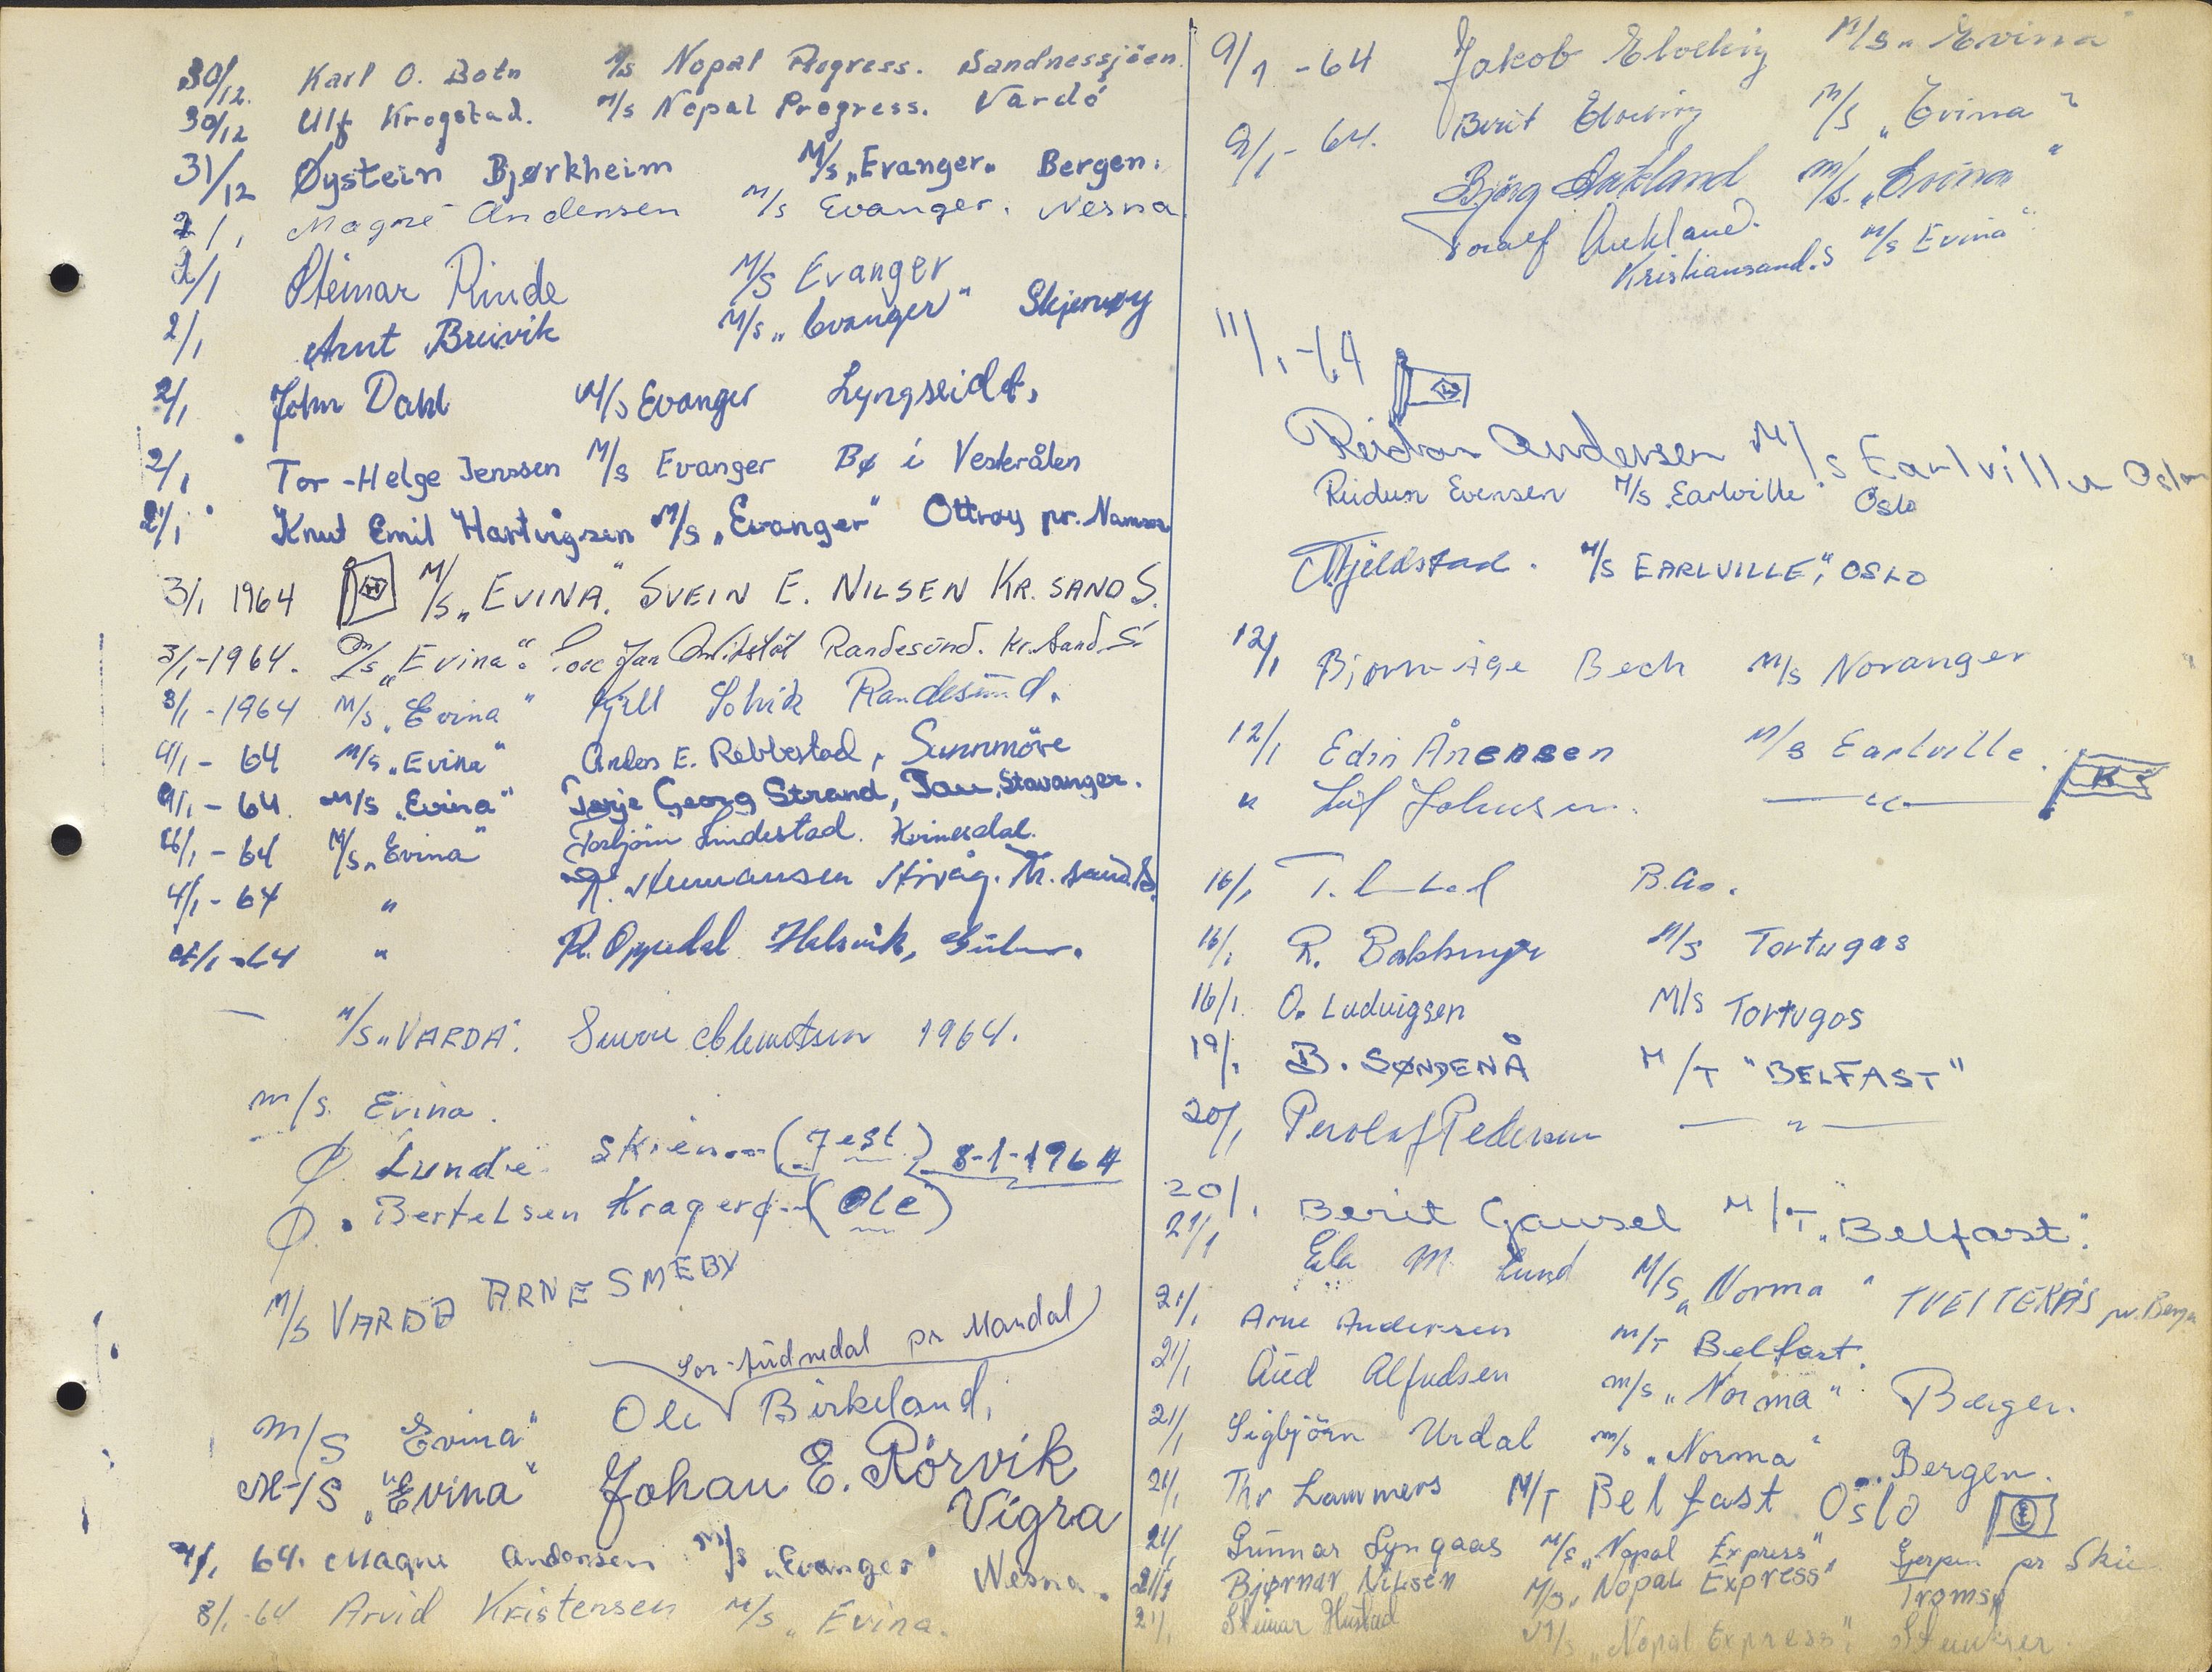 30/12. Karl O. Botn M/s Nopal Progress. Sandnessjöen.
30/12 Ulf Krogstad. M/s Nopal Progress. Vardö
31/12 Øystein Bjørkheim M/s „Evanger„ Bergen.
2/1 Magne Andensen M/s Evanger. Nesna
2/1 Steinar Rinde M/S Evanger
2/1 Arnt Breivik M/s „Evanger" Skjervøy
2/1 John Dahl M/s Evanger Lyngseidet,
2/1 Tor-Helge Jenssen M/s Evanger Bø i Vesterålen
2/1 Knut Emil Hartvigsen M/s „Evanger" Ottrøy pr. Namsos
3/1 1964 M/s „EVINA". SVEIN E. NILSEN KR. SAND S.
3/1-1964. M/s „Evina". Jan Randesund. Kr. Sand S
3/1-1964 M/s „Evina" Kjell Solvik Randesund.
4/1- 64 M/s „Evina" Anders E. Rebbestad, Sunnmöre
4/1- 64. M/s „Evina" Terje Georg Strand, Tau, Stavanger.
4/1- 64 M/s „Evina" Torbjörn Lindestad. Kvinesdal.
4/1- 64 " R. Hermansen Hövåg. Kr. sand. S.
4/1-64 " R. Oppedal Halsvik,
M/s „VARDA". 1964.
m/s. Evina.
Ø. Lunde. Skien--(Jest.) 8-1-1964
Ø. Bertelsen Kragerø--(Ole)
M/s VARDA ARNE SMEBY
Sør-Audnedal pr Mandal
m/s Evina" Ole Birkeland,
M-/S „Evina" Johan E. Rörvik
Vigra
4/1 64. Magne Andersen M/s „Evanger" Nesna.
8/1-64 Arvid Kristensen M/s „Evina.
9/1 -64 Jakob M/s „Evina"
9/1- 64. Berit M/s „Evina"
Bjørg Aukland m/s. „Evina"
Toralf Aukland. M/s Evina"
Kristiansand.S
11/1-64
Reidar Andersen M/s Earlville Oslo
Reidun Evensen M/s Earlville Oslo
Mjeldstad. M/S EARLVILLE", OSLO
12/1 Bjørn-Åge Bech M/s Noranger
12/1 Edin M/s Earlville.
" Leif Johnsen. —"—
16/1 T.
16/1 R. M/s Tortugas
16/1. O. Ludvigsen M/s Tortugas
19/1 B. SØNDENÅ M/T "BELFAST"
20/1 Per Olaf Pedersen —"—
20/1. Berit Gausel M/T „Belfast".
21/1 M. Lund M/S „Norma" TVEITERÅS pr. Bergen
21/1 Arne Andersen M/T Belfast.
21/1 Aud Alfudsen m/s „Norma" Bergen.
21/1 Sigbjörn Urdal m/s „Norma" Bergen.
21/1 Thr Lammers M/T Belfast Oslo
21/1 Gunnar Lyngaas M/S „Nopal Express", Gerpen pr Skien
21/1 Bjørnar Nilsen M/S „Nopal Express" Tromsø
21/1 Steinar Hustad M/s „Nopal Express", Steinkjer.